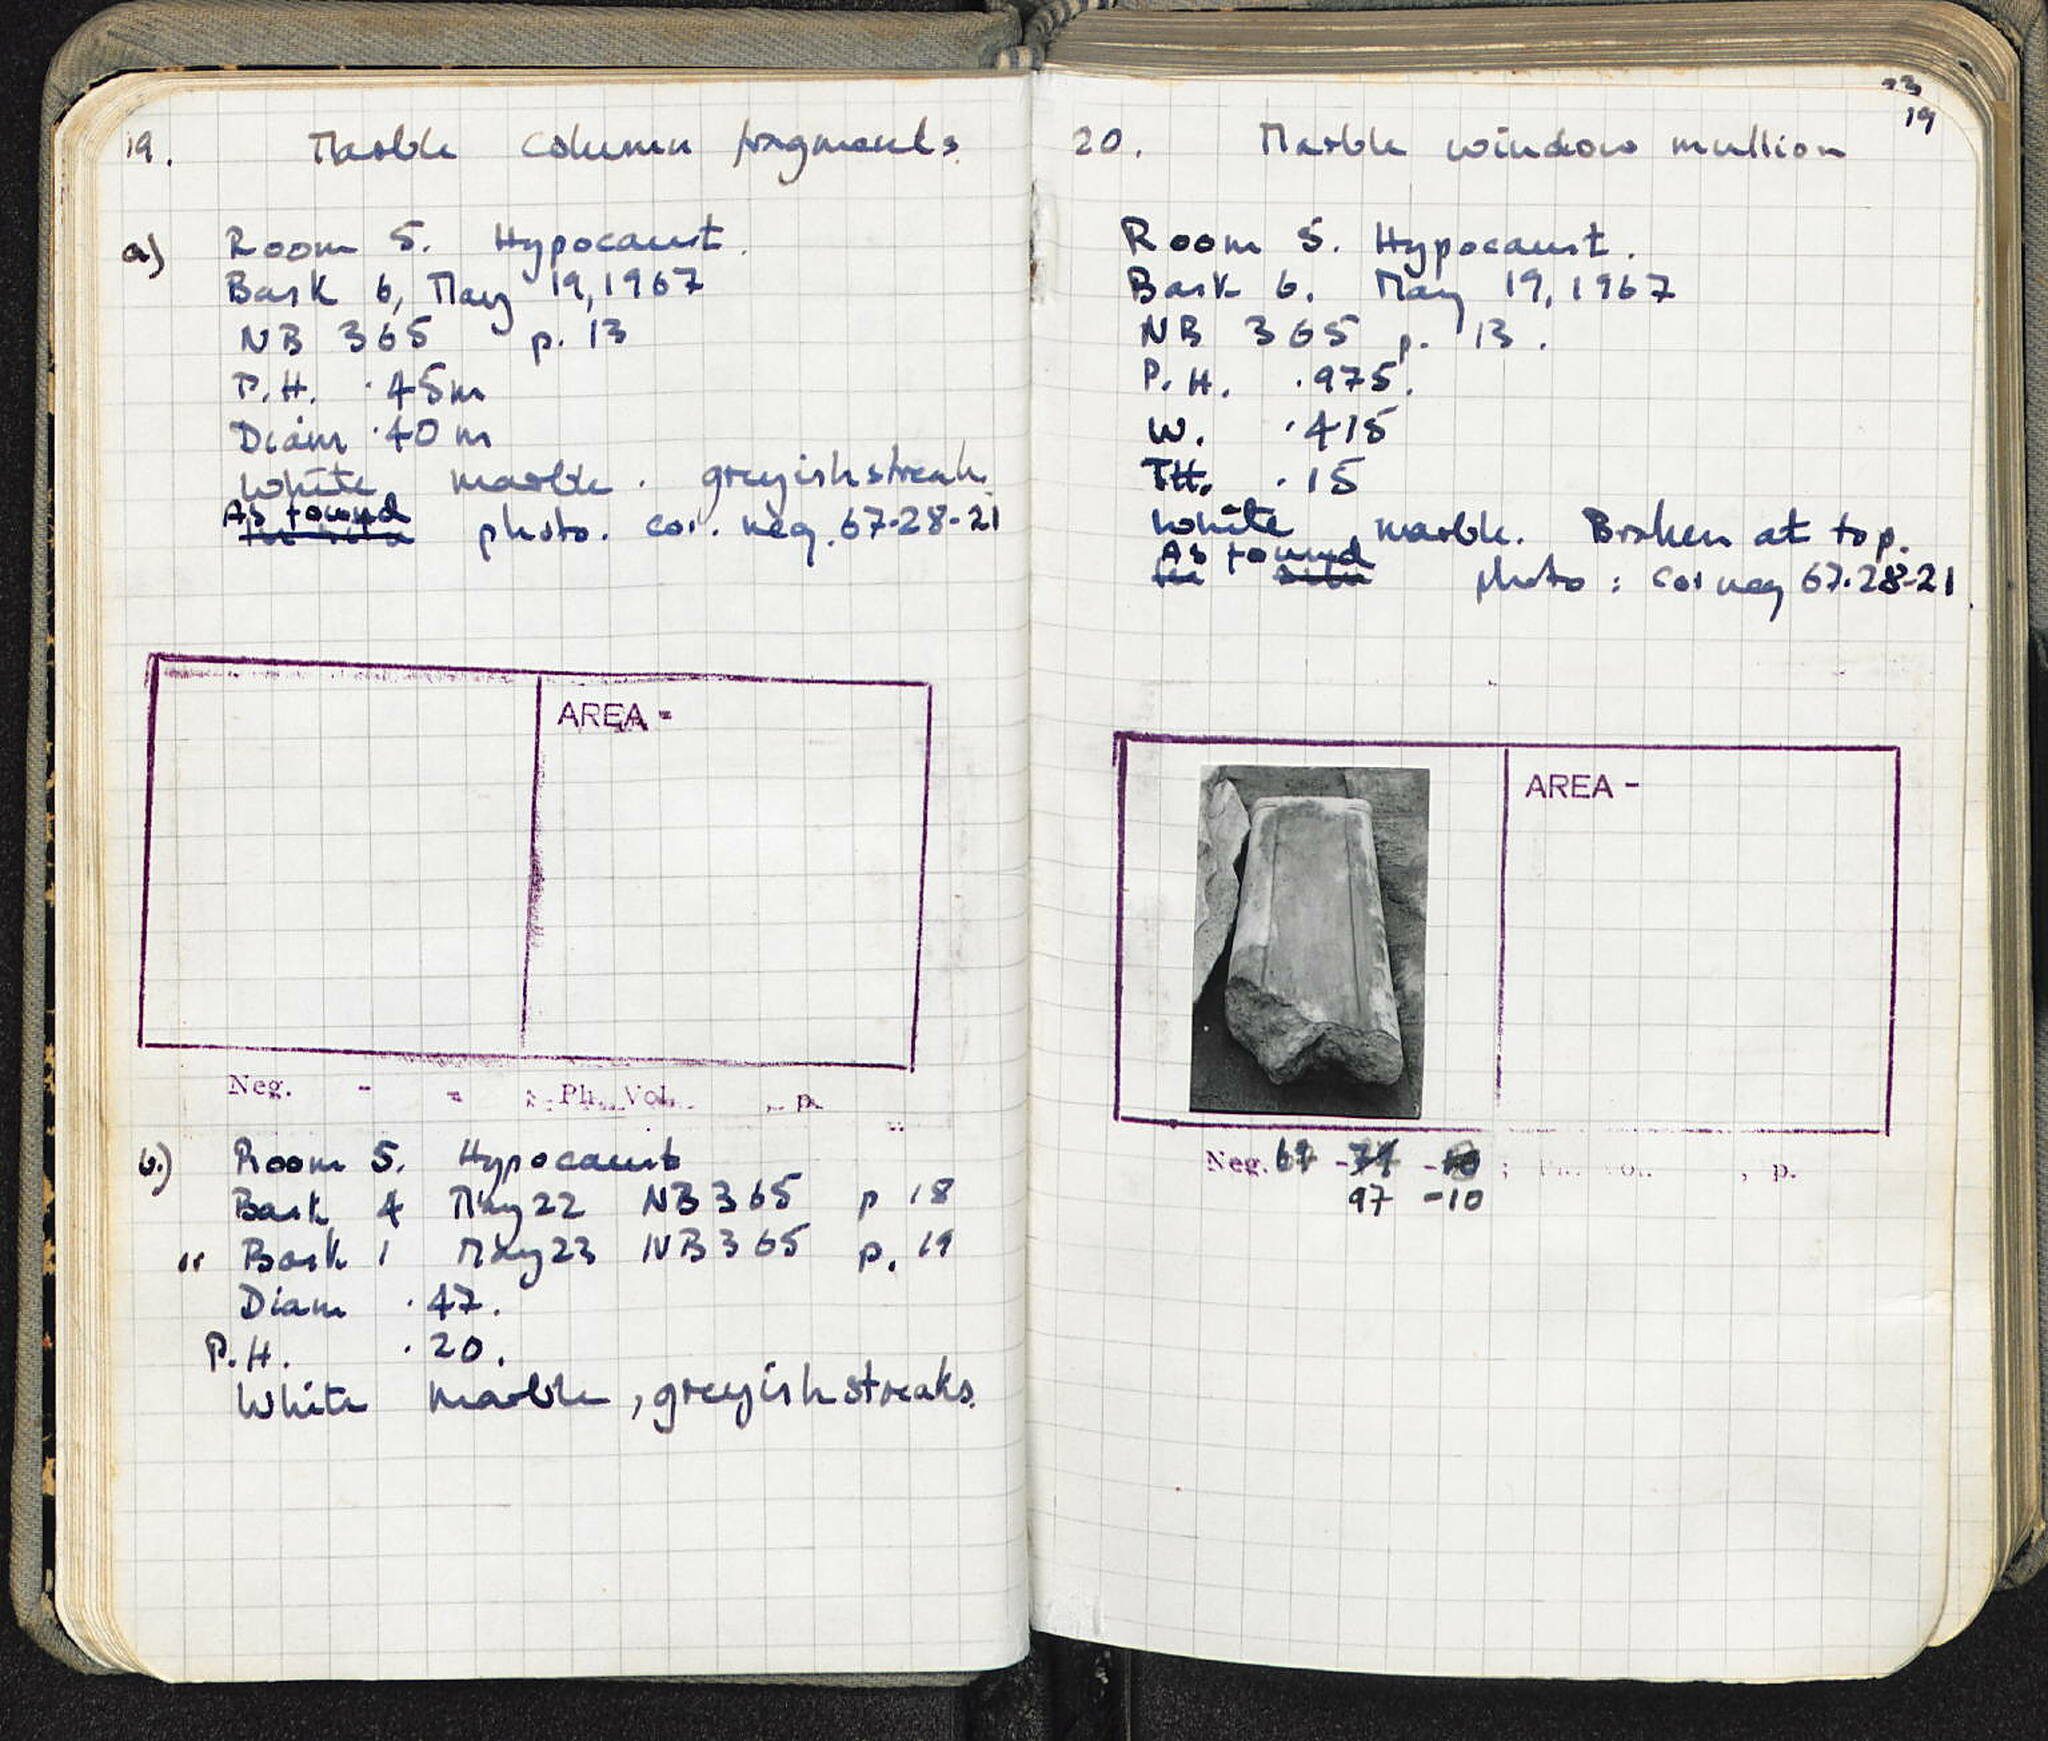 19. Marble column fragments.
a) Room 5. Hypocaust.
Bask 6, May 19, 1967
NB 365 p. 13
P.H. .45m
Diam .40m
White marble. greyish streak.
As found
photo. cor. neg. 67-28-21
AREA -
Neg. - - ; Ph. Vol. , p.
b.) Room 5. Hypocaust
Bask 4 May 22 NB 365 p 18
" Bask 1 May 23 NB 365 p. 19
Diam .47.
P.H. .20.
White marble, greyish streaks.
19
20. Marble window mullion
Room 5. Hypocaust.
Bask 6. May 19, 1967
NB 365 p. 13.
P.H. .975.
W. .415
TH. .15
White marble. Broken at top.
As found
in situ photo: cor neg 67.28-21.
AREA -
Neg. 67 - - ; Ph. Vol. , p.
97 -10